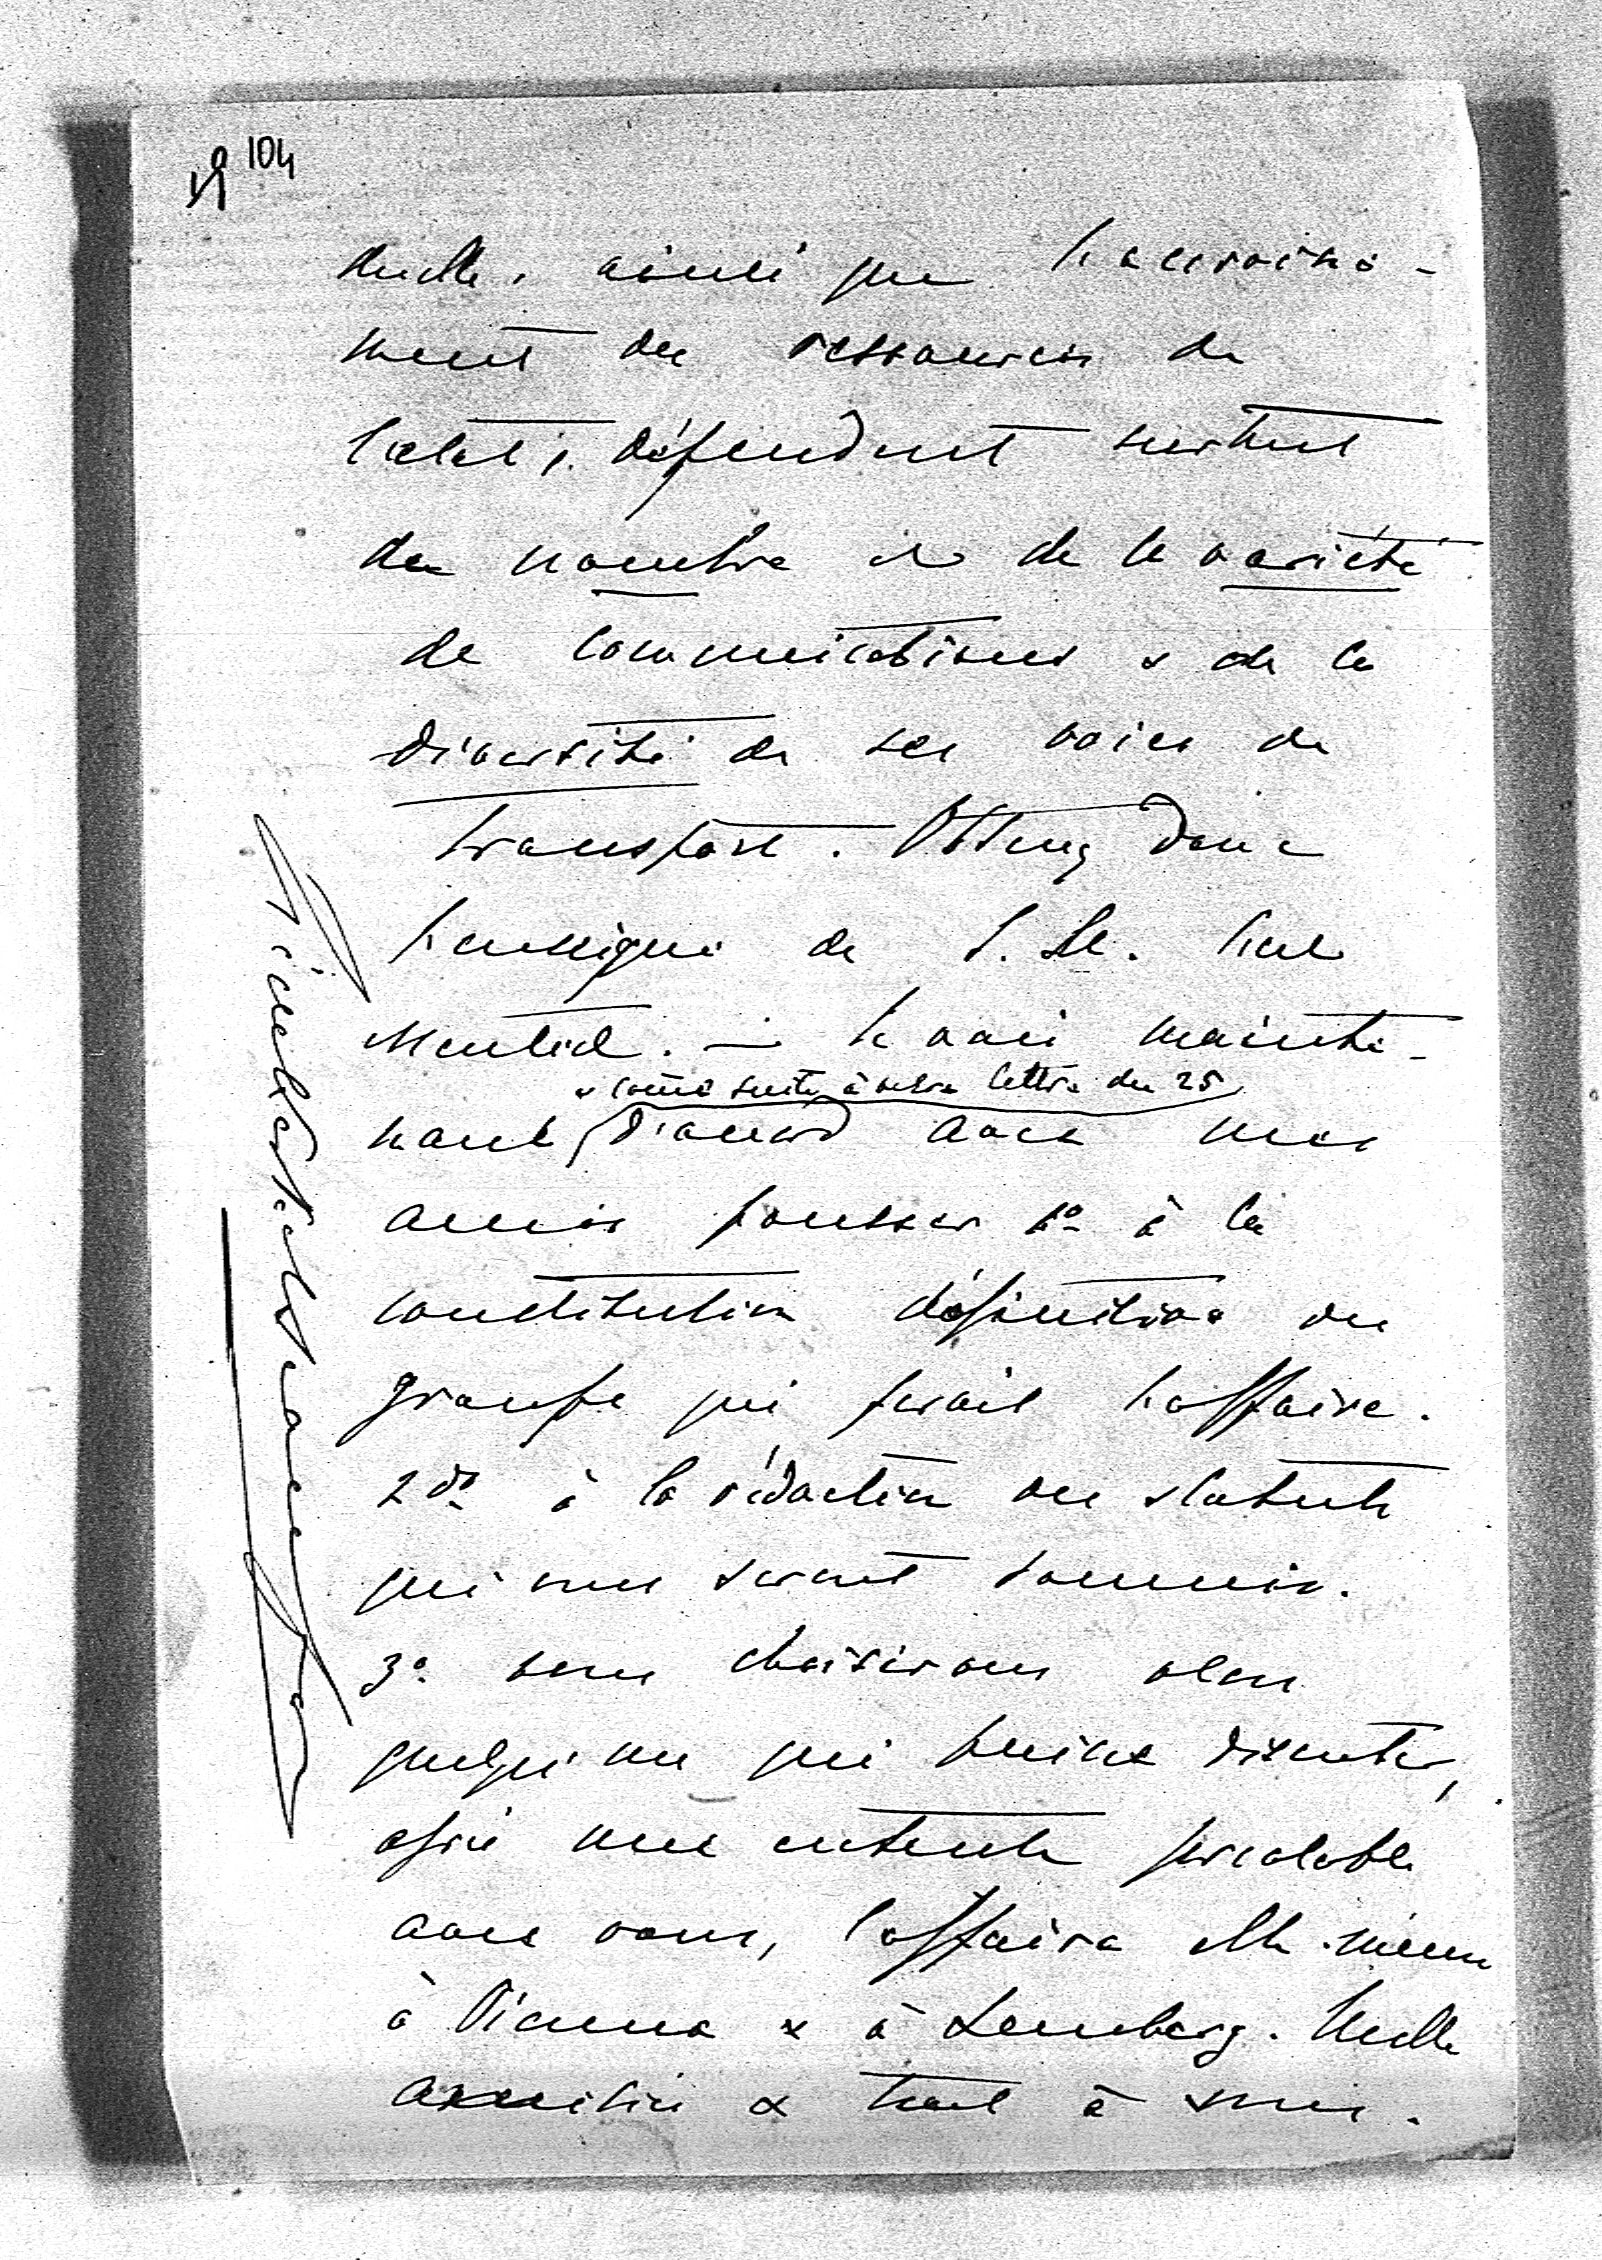 104
duelle, ainsi que l'accroisse-
ment des ressources de
l'état, dépendent surtout
du nombre et de la variété
de communications & de la
diversité de ses voies de
transport. Obtenez donc
de S. M.
Montiel. — Je vais mainte-
& comme suite à votre lettre du 25
nant, d'accord avec mes
amis pousser 1º à la
constitution définitive du
groupe qui ferait l'affaire.
2do à la rédaction des statuts
qui vous seront soumis.
3º nous choisirons alors
quelqu'un qui puisse discuter,
après une entente préalable
avec vous, l'affaire elle-même
à Vienne & à Lemberg. Mille
amitiés & tout à vous.